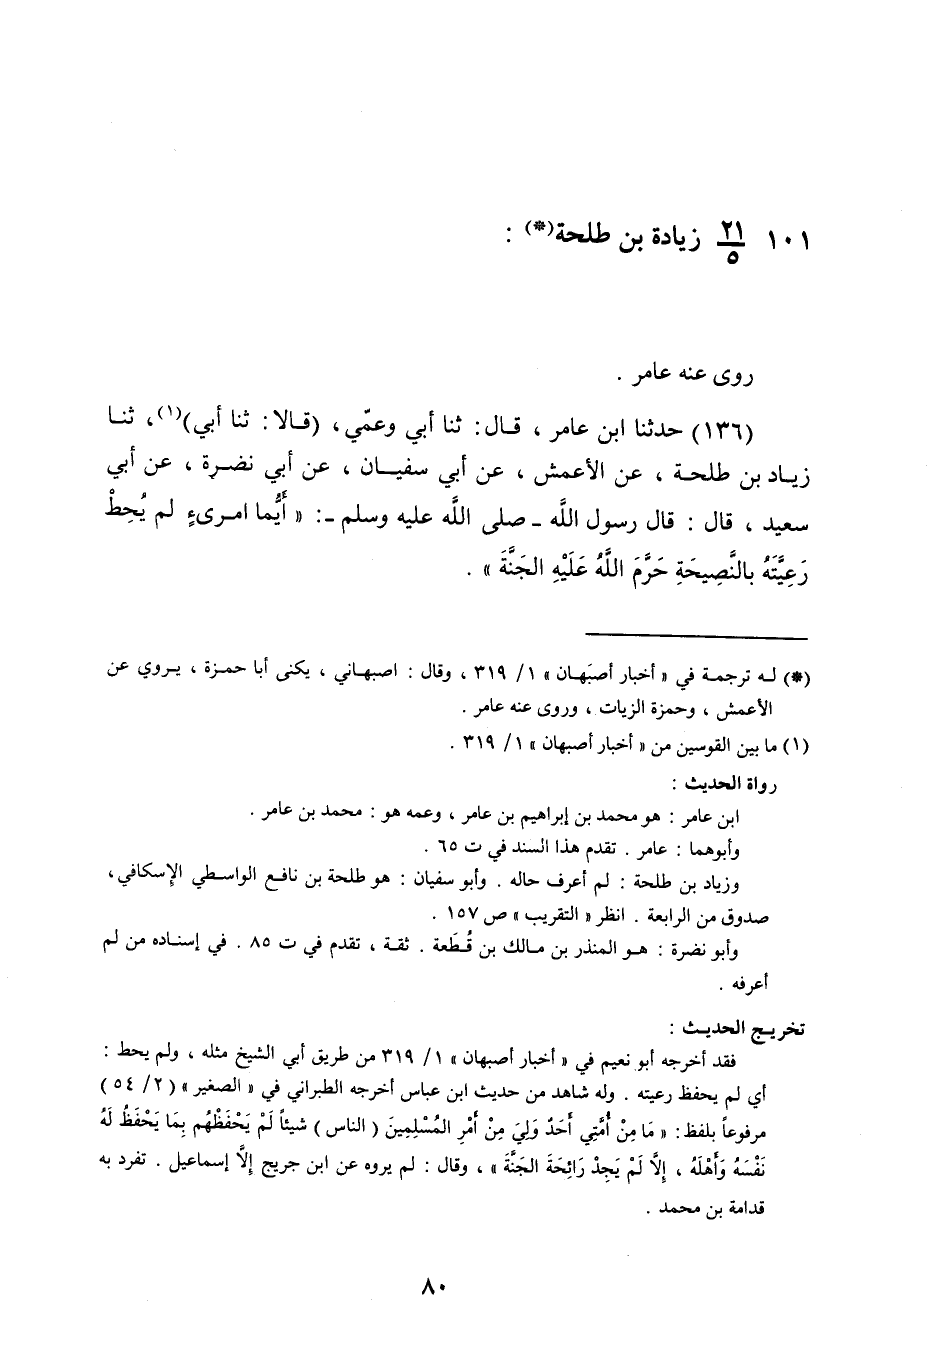 ١٠١ ٢١/٥ زيادة بن طلحة(*) :
روى عنه عامر .
(١٣٦) حدثنا ابن عامر ، قـال: ثنا أبي وعمّي، (قـالا: ثنا أبي)(١)، ثنـا
زيـاد بن طلحـة ، عن الأعمش ، عن أبي سفيـان ، عن أبي نضـرة ، عن أبي
سعيد ، قال : قال رسول اللَّه ـ صلى اللَّه عليه وسلم ـ: « أَيُّما امـرىءٍ لم يُحِطْ
رَعِيَّتَهُ بالنَّصِيحَةِ حَرَّمَ اللَّهُ عَلَيْهِ الجَنَّةَ » .
(*) لـه ترجمـة في « أخبار أصبَهـان » ١/ ٣١٩ ، وقال : اصبهـاني ، يكنى أبا حمـزة ، يـروي عن
الأعمش ، وحمزة الزيات ، وروى عنه عامر .
(١) ما بين القوسين من « أخبار أصبهان » ١/ ٣١٩ .
رواة الحديث :
ابن عامر : هو محمد بن إبراهيم بن عامر ، وعمه هو : محمد بن عامر .
وأبوهما : عامر . تقدم هذا السند في ت ٦٥ .
وزياد بن طلحة : لم أعرف حاله . وأبو سفيان : هو طلحة بن نافع الواسطي الإسكافي،
صدوق من الرابعة . انظر « التقريب » ص ١٥٧ .
وأبو نضرة : هـو المنذر بن مـالك بن قُـطَعة . ثقـة ، تقدم في ت ٨٥ . في إسنـاده من لم
أعرفه .
تخريـج الحديـث :
فقد أخرجه أبو نعيم في « أخبار أصبهان » ١/ ٣١٩ من طريق أبي الشيخ مثله ، ولم يحط :
أي لم يحفظ رعيته . وله شاهد من حديث ابن عباس أخرجه الطبراني في « الصغير » (٢/ ٥٤)
مرفوعاً بلفظ: « مَا مِنْ أُمَّتِي أَحَدٌ وَلِيَ مِنْ أَمْرِ المُسْلِمِينَ ( الناس ) شيئاً لَمْ يَحْفَظْهُم بِمَا يَحْفَظُ لَهُ
نَفْسَهُ وَأَهْلَهُ ، إِلَّا لَمْ يَجِدْ رَائِحَةَ الجَنَّةَ » ، وقال : لم يروه عن ابن جريج إلَّا إسماعيل . تفرد به
قدامة بن محمد .
٨٠